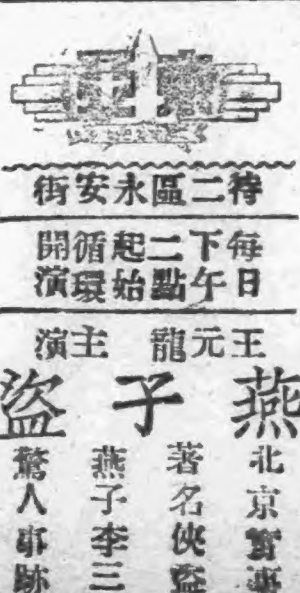 特二區永安街
每日下午二點起始循環開演
王元龍 主演
燕子盜
北京實事
著名俠盜
燕子李三
驚人事跡